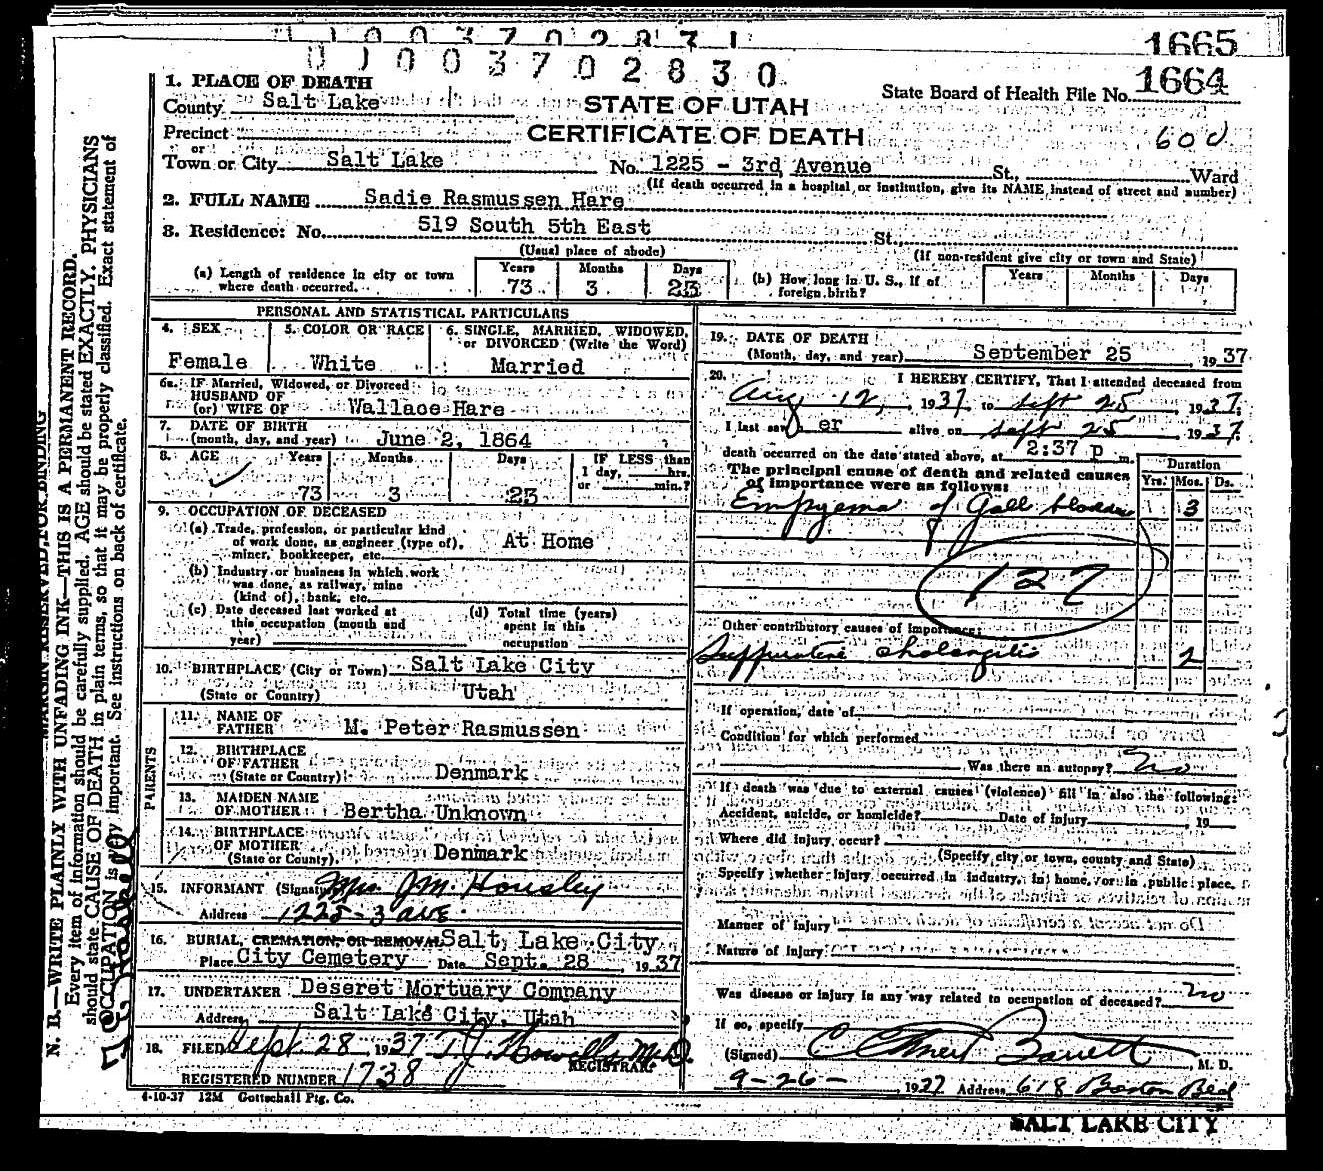 1665
0 1 0 0 3 7 0 2 8 3 0
1664
1. PLACE OF DEATH
County Salt Lake
STATE OF UTAH
State Board of Health File No.
CERTIFICATE OF DEATH
600
Precinct
or
Town or City Salt Lake No. 1225 - 3rd Avenue St., Ward
(If death occurred in a hospital or institution, give its NAME instead of street and number)
2. FULL NAME Sadie Rasmussen Hare
3. Residence: No. 519 South 5th East St.,
(Usual place of abode) (If non-resident give city or town and State)
(a) Length of residence in city or town where death occurred. Years 73 Months 3 Days 23
(b) How long in U. S., if of foreign birth? Years Months Days
PERSONAL AND STATISTICAL PARTICULARS
4. SEX Female
5. COLOR OR RACE White
6. SINGLE, MARRIED, WIDOWED, or DIVORCED (Write the Word) Married
6a. IF Married, Widowed, or Divorced
HUSBAND OF
(or) WIFE OF Wallace Hare
7. DATE OF BIRTH
(month, day, and year) June 2, 1864
8. AGE Years 73 Months 3 Days 23
IF LESS than 1 day, hrs. or min.?
9. OCCUPATION OF DECEASED
(a) Trade, profession, or particular kind
of work done, as engineer (type of), At Home
miner, bookkeeper, etc.
(b) Industry or business in which work
was done, as railway, mine
(kind of), bank, etc.
(c) Date deceased last worked at
this occupation (month and
year)
(d) Total time (years)
spent in this
occupation
10. BIRTHPLACE (City or Town) Salt Lake City
(State or Country) Utah
PARENTS
11. NAME OF
FATHER M. Peter Rasmussen
12. BIRTHPLACE
OF FATHER
(State or Country) Denmark
13. MAIDEN NAME
OF MOTHER Bertha Unknown
14. BIRTHPLACE
OF MOTHER
(State or County) Denmark
15. INFORMANT (Signature) Mrs J. M. Housley
Address 1225 - 3 ave.
16. BURIAL, CREMATION, OR REMOVAL Salt Lake City
Place City Cemetery Date Sept. 28, 1937
17. UNDERTAKER Deseret Mortuary Company
Address Salt Lake City, Utah
18. FILED Sept. 28 1937 T. J. Howells M.D.
REGISTRAR.
REGISTERED NUMBER 1738
4-10-37 12M Gottschall Ptg. Co.
19. DATE OF DEATH
(Month, day, and year) September 25, 1937
20. I HEREBY CERTIFY, That I attended deceased from
Aug 12, 1937 to Sept 25, 1937.
I last saw her alive on Sept 25 1937.
death occurred on the date stated above, at 2:37 p m.
The principal cause of death and related causes
of importance were as follows:
Duration
Yrs. Mos. Ds.
Empyema of Gall bladder 3
127
Other contributory causes of importance:
Suppurative cholangitis 2
If operation, date of
Condition for which performed
Was there an autopsy? No
If death was due to external causes (violence) fill in also the following:
Accident, suicide, or homicide? Date of injury , 19
Where did injury occur?
(Specify city or town, county and State)
Specify whether injury occurred in industry, in home, or in public place.
Manner of injury
Nature of injury
Was disease or injury in any way related to occupation of deceased? No
If so, specify
(Signed) C Elmer Barrett, M. D.
9-26- 1937 Address 618 Boston Bld
SALT LAKE CITY
MARGIN RESERVED FOR BINDING
N. B.—WRITE PLAINLY WITH UNFADING INK—THIS IS A PERMANENT RECORD.
Every item of information should be carefully supplied. AGE should be stated EXACTLY. PHYSICIANS
should state CAUSE OF DEATH in plain terms, so that it may be properly classified. Exact statement of
OCCUPATION is very important. See instructions on back of certificate.